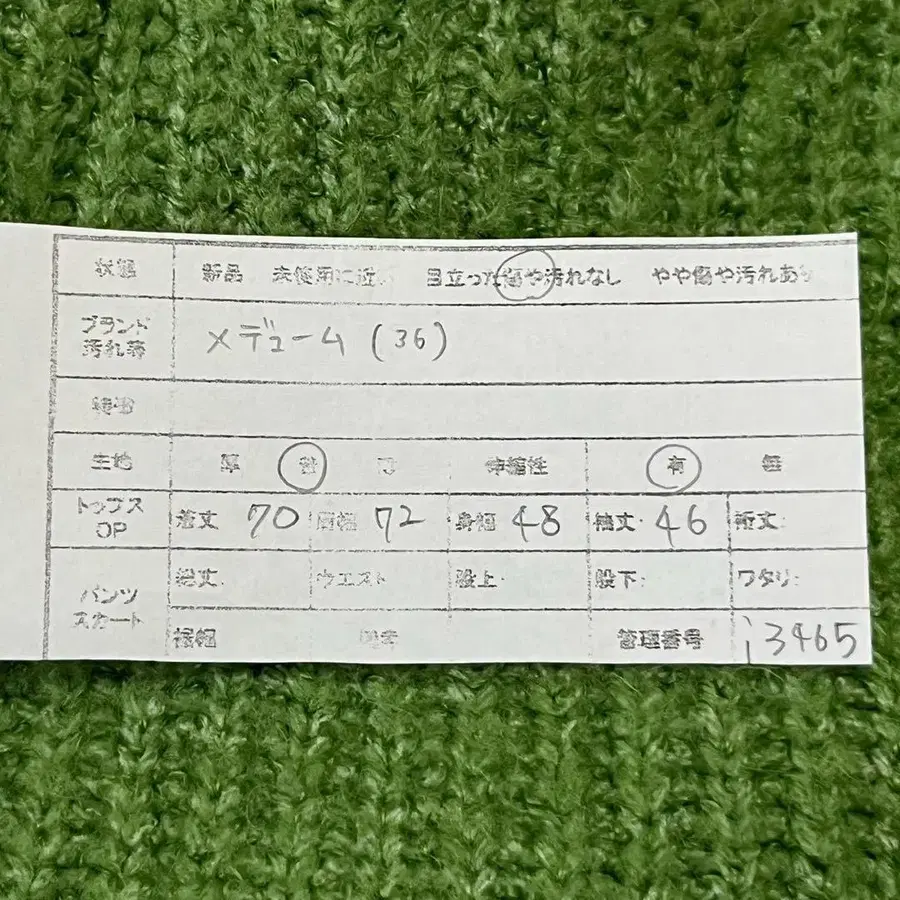 状態 新品 未使用に近い 目立った傷や汚れなし やや傷や汚れあり
ブランド 汚れ等 メデューム (36)
生地 厚 普 伸縮性 有 無
トップス OP 着丈 70 肩幅 72 身幅 48 袖丈 46 裄丈
パンツ スカート 総丈 ウエスト 股上 股下 ワタリ
裾幅 備考 管理番号 i3465